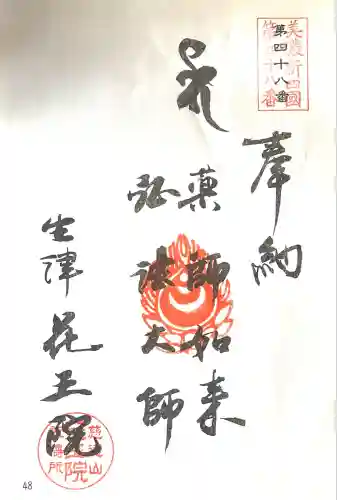 美濃新四國
第四十八番
奉納
薬師如来
弘法大師
生津 花王院
48